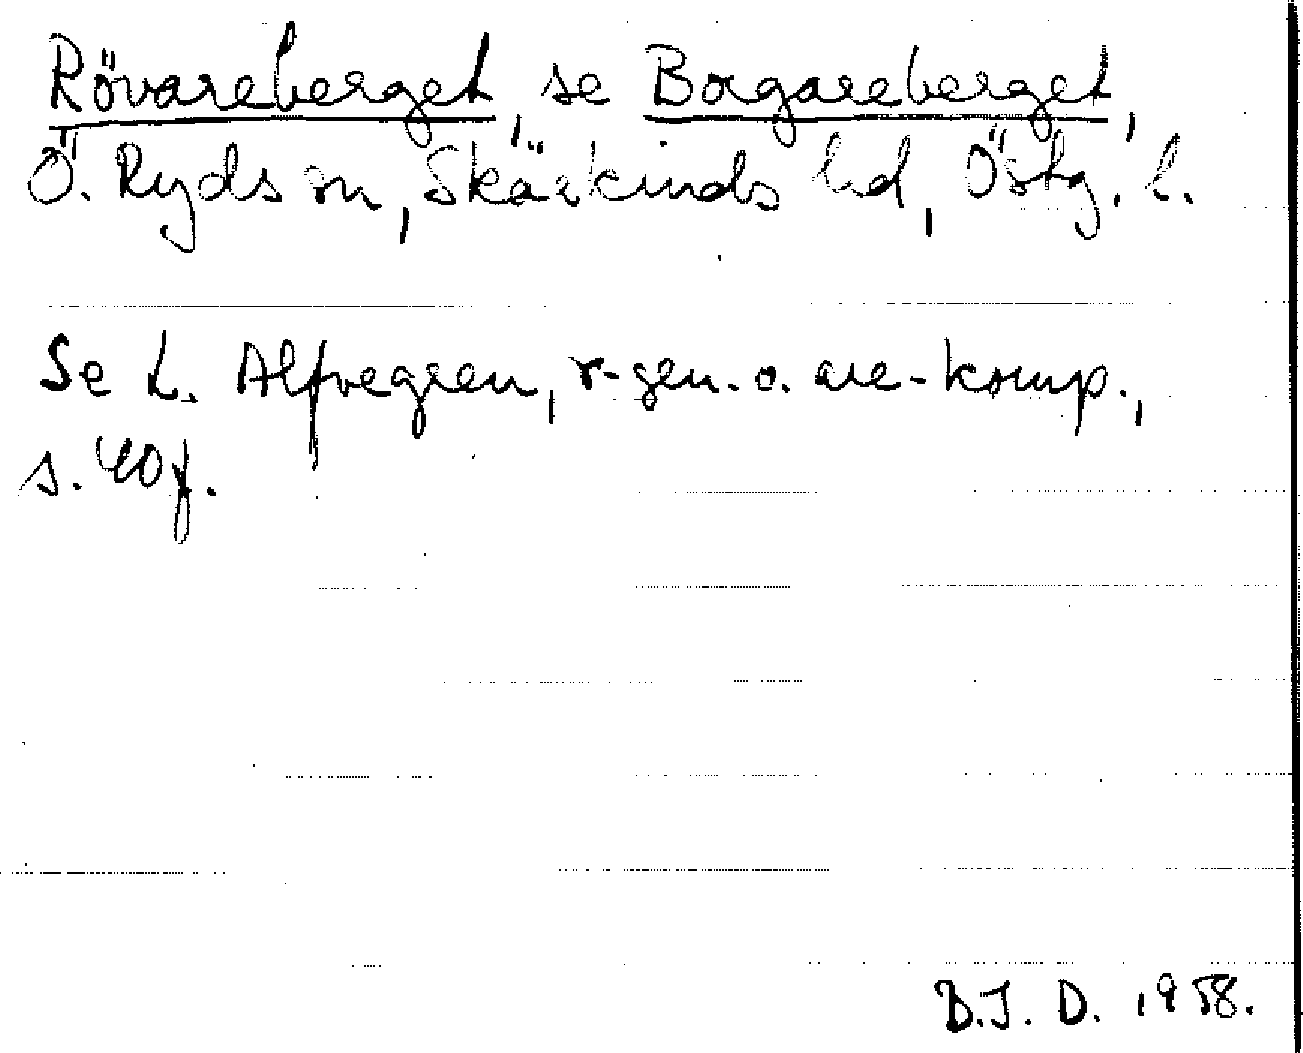 Rövareberget, se Borgareberget,
Ö. Ryds sn, Skärkinds hd, Östg. l.
Se L. Alfvegren, r-gen. o. are-komp.,
s. 40 f.
B.J. D. 1958.